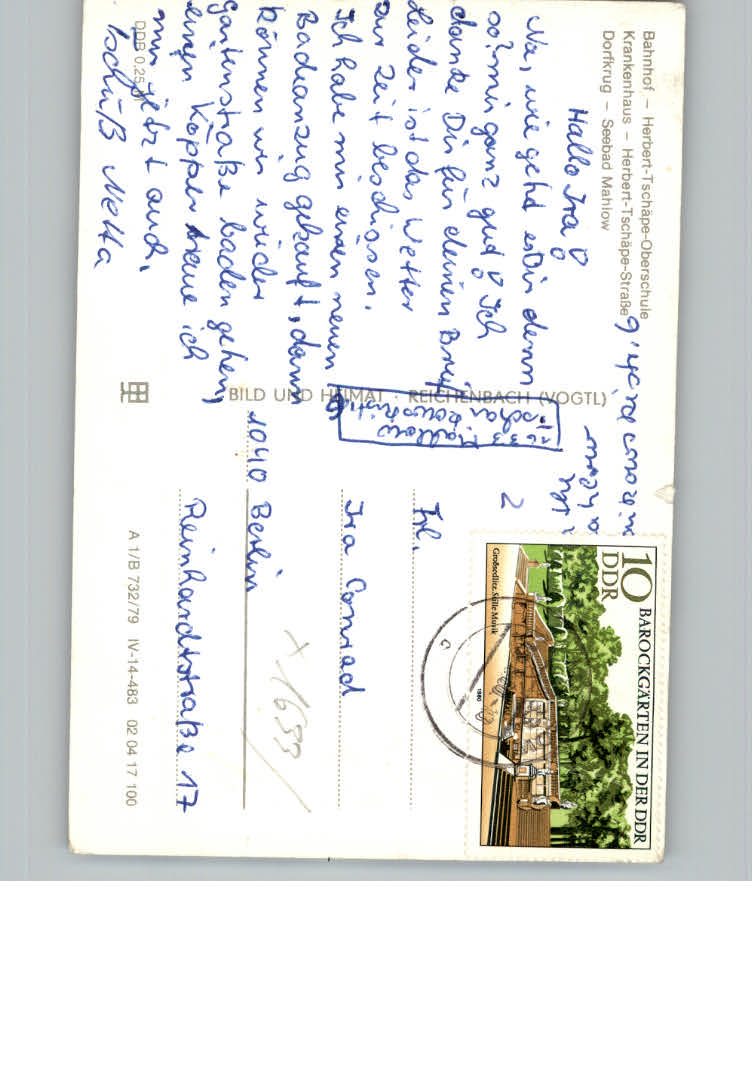 Bahnhof – Herbert-Tschäpe-Oberschule
Krankenhaus – Herbert-Tschäpe-Straße
Dorfkrug – Seebad Mahlow
Hallo Ira!
Na, wie geht es Dir denn
so? mir ganz gut! Ich
danke Dir für deinen Brief
Leider ist das Wetter
zur Zeit beschissen.
Ich habe mir einen neuen
Badeanzug gekauft, dann
können wir wieder
Gartenstraße baden gehen,
einen Köpper traue ich
mir jetzt auch.
Tschüß Netta
DDB 0,25 M
BILD UND HEIMAT · REICHENBACH (VOGTL)
1633
Mahlow
2
Frl.
Ira Conrad
1040 Berlin
Reinhardtstraße 17
x 1633
A 1/B 732/79 IV-14-483 02 04 17 100
10
DDR
BAROCKGÄRTEN IN DER DDR
Großsedlitz, Stille Musik
1980